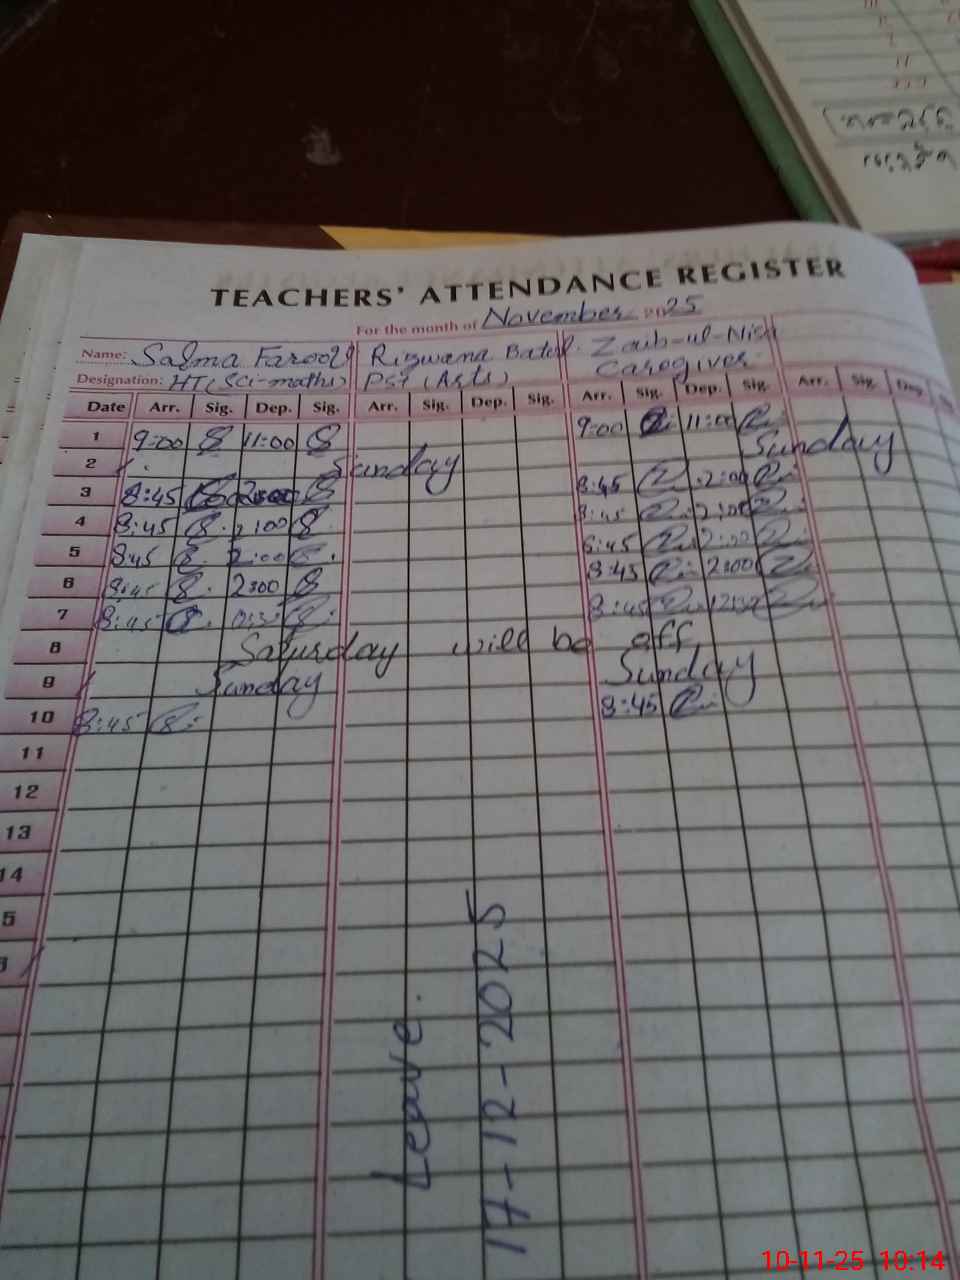 TEACHERS' ATTENDANCE REGISTER
For the month of November 2025
Name: Salma Farooq Rizwana Batool Zaib-ul-Nisa
Designation: HT (Sci-maths) PST (Arts) Caregiver
Date Arr. Sig. Dep. Sig. Arr. Sig. Dep. Sig. Arr. Sig. Dep. Sig. Arr. Sig. Dep.
1 9:00 11:00 9:00 11:00
2 Sunday Sunday
3 8:45 2:00 8:45 2:00
4 8:45 2:00 8:45 2:00
5 8:45 2:00 8:45 2:00
6 8:45 2:00 8:45 2:00
7 8:45 8:45 12:30
8 Saturday will be off
9 Sunday Sunday
10 8:45 8:45
11
12
13
14
5
Leave
17-12-2025
10-11-25 10:14